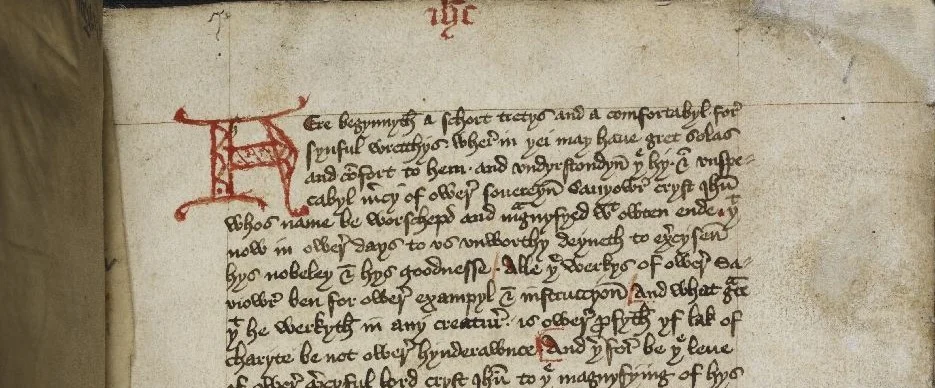 ihc
HEre begynnyth a schort tretys and a comfortabyl for
synful wrecchys. wher in þei may haue gret solas
and cōfort to hem. and vndyrstondyn þe hy. & vnspe-
cabyl mcy of ower souereyn Sauyowr cryst Ihū
whos name be worschepd and magnyfyed wt owten ende. þt
now in ower days to vs vnworthy deyneth to excysen
hys nobeley & hys goodnesse / Alle þe werkys of ower Sa-
viowr ben for ower exampyl & instruccyon / And what gce
þt he werkyth in any creatur. is ower pfyth yf lak of
charyte be not ower hynderawnce And þfor be þe leue
of ower mcyful lord cryst Ihū to þe magnyfying of hys